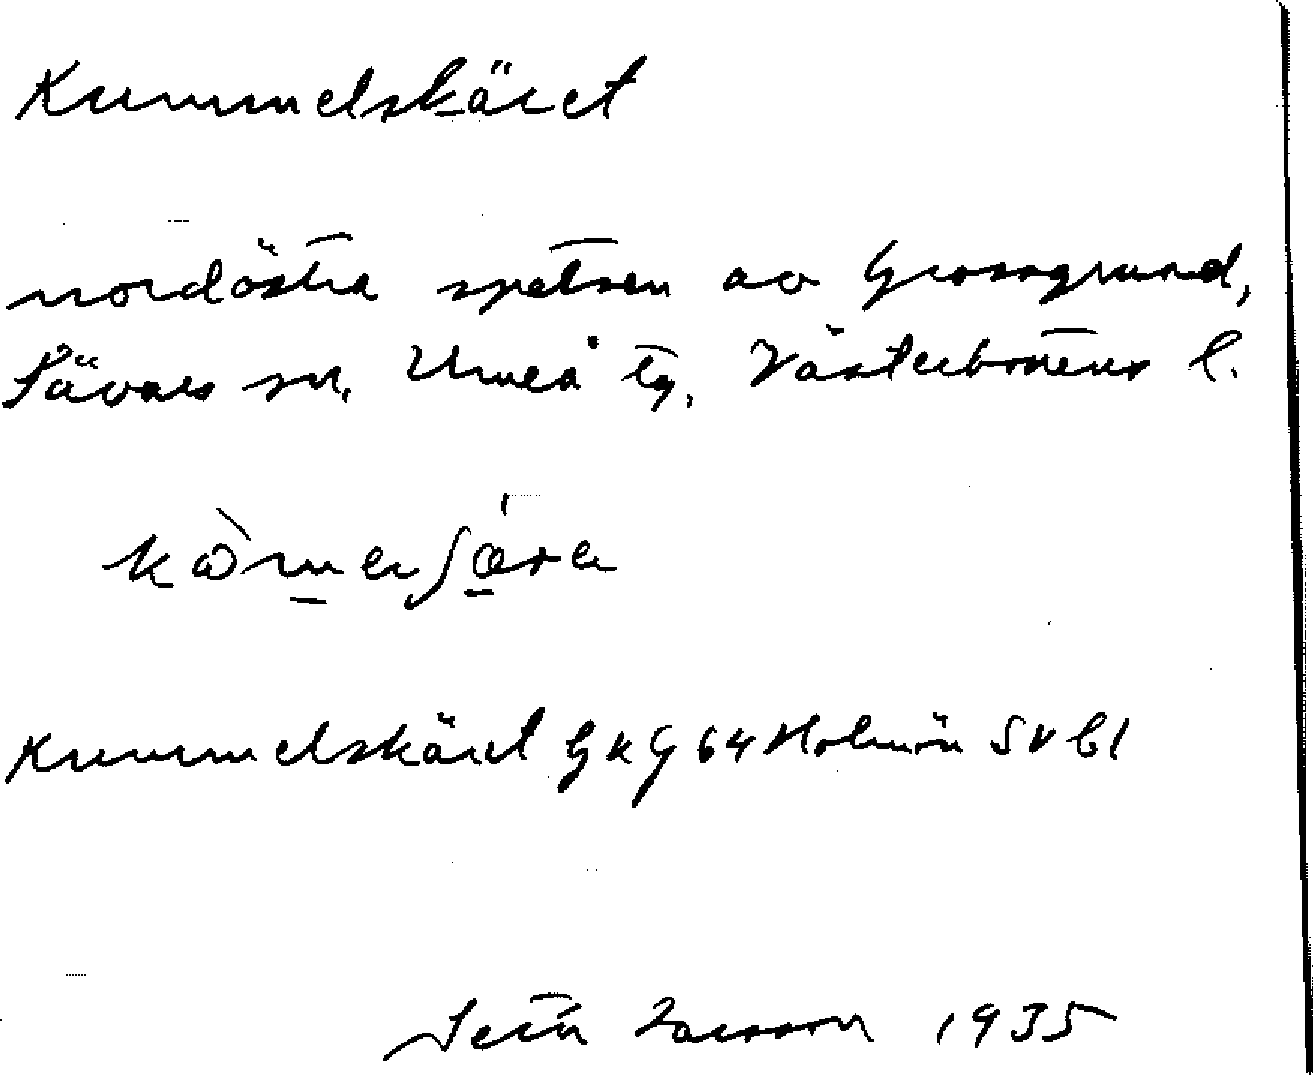 Kummelskäret
nordöstra spetsen av Grossgrund,
Sävars sn, Umeå tg, Västerbottens l.
Kummelskäret GKG 64 Holmön SV bl
Larsson 1935